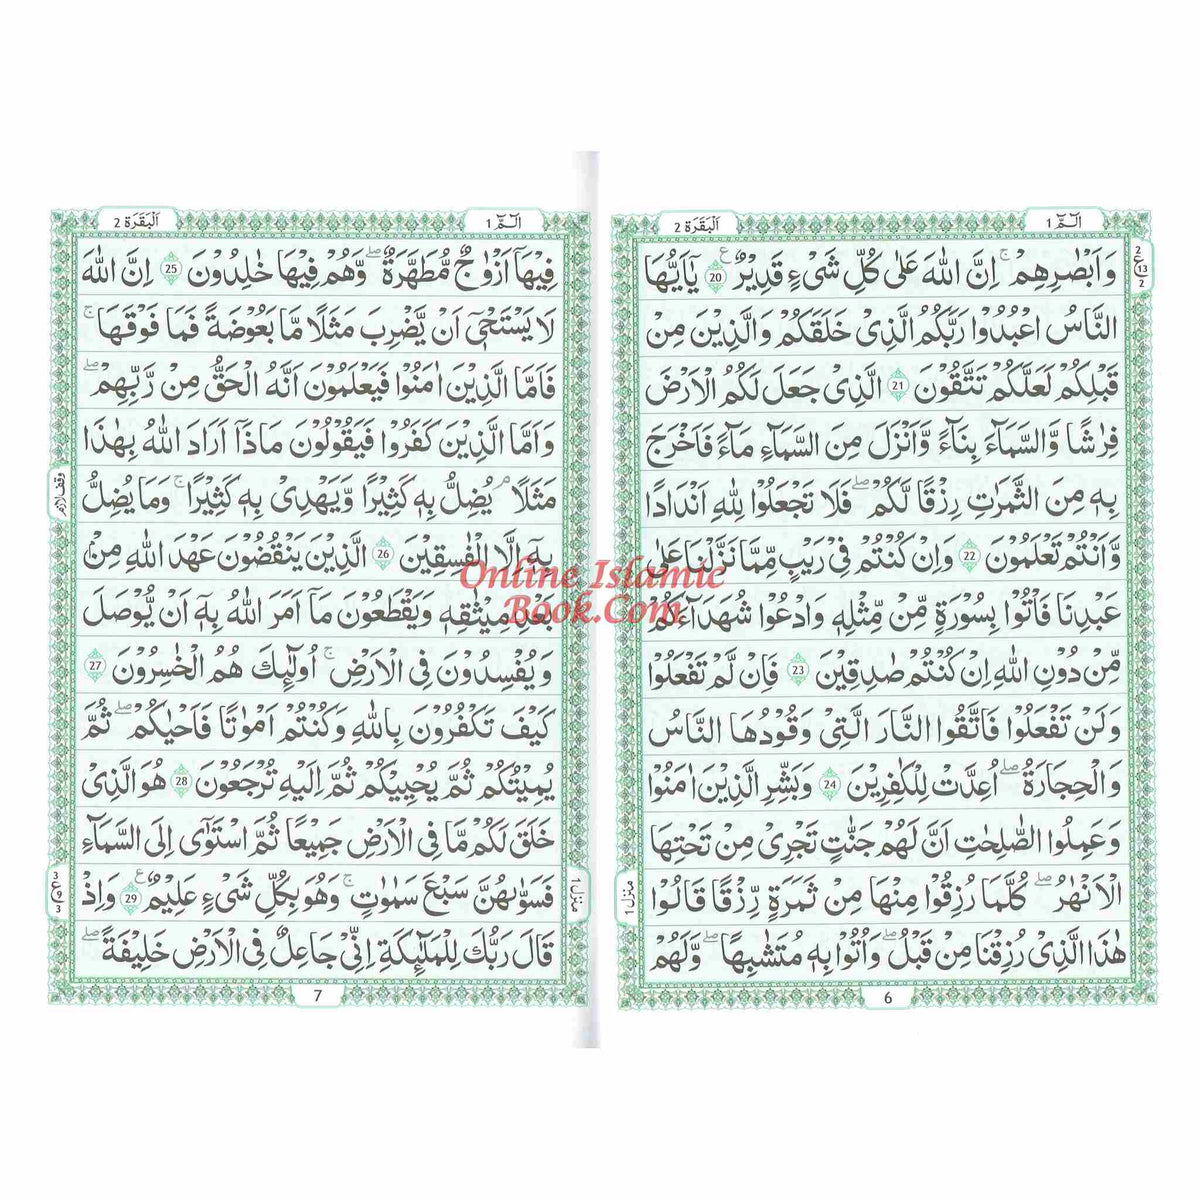 الٓمّٓ 1
اَلبَقَرَة 2
وَاَبْصٰرِهِمْ ۚ اِنَّ اللّٰهَ عَلٰى كُلِّ شَىْءٍ قَدِيْرٌ ۠ 20 يٰٓاَيُّهَا
النَّاسُ اعْبُدُوْا رَبَّكُمُ الَّذِىْ خَلَقَكُمْ وَالَّذِيْنَ مِنْ
قَبْلِكُمْ لَعَلَّكُمْ تَتَّقُوْنَ 21 الَّذِىْ جَعَلَ لَكُمُ الْاَرْضَ
فِرٰشًا وَّالسَّمَآءَ بِنَآءً وَّاَنْزَلَ مِنَ السَّمَآءِ مَآءً فَاَخْرَجَ
بِهٖ مِنَ الثَّمَرٰتِ رِزْقًا لَّكُمْ ۖ فَلَا تَجْعَلُوْا لِلّٰهِ اَنْدَادًا
وَّاَنْتُمْ تَعْلَمُوْنَ 22 وَاِنْ كُنْتُمْ فِىْ رَيْبٍ مِّمَّا نَزَّلْنَا عَلٰى
عَبْدِنَا فَاْتُوْا بِسُوْرَةٍ مِّنْ مِّثْلِهٖ وَادْعُوْا شُهَدَآءَكُمْ
مِّنْ دُوْنِ اللّٰهِ اِنْ كُنْتُمْ صٰدِقِيْنَ 23 فَاِنْ لَّمْ تَفْعَلُوْا
وَلَنْ تَفْعَلُوْا فَاتَّقُوا النَّارَ الَّتِىْ وَقُوْدُهَا النَّاسُ
وَالْحِجَارَةُ ۖ اُعِدَّتْ لِلْكٰفِرِيْنَ 24 وَبَشِّرِ الَّذِيْنَ اٰمَنُوْا
وَعَمِلُوا الصّٰلِحٰتِ اَنَّ لَهُمْ جَنّٰتٍ تَجْرِىْ مِنْ تَحْتِهَا
الْاَنْهٰرُ ۖ كُلَّمَا رُزِقُوْا مِنْهَا مِنْ ثَمَرَةٍ رِّزْقًا قَالُوْا
هٰذَا الَّذِىْ رُزِقْنَا مِنْ قَبْلُ ۖ وَاُتُوْا بِهٖ مُتَشٰبِهًا ۖ وَلَهُمْ
2
ع
13
2
منزل 1
6
الٓمّٓ 1
اَلبَقَرَة 2
فِيْهَآ اَزْوٰجٌ مُّطَهَّرَةٌ ۖ وَّهُمْ فِيْهَا خٰلِدُوْنَ 25 اِنَّ اللّٰهَ
لَا يَسْتَحْىٖٓ اَنْ يَّضْرِبَ مَثَلًا مَّا بَعُوْضَةً فَمَا فَوْقَهَا ۚ
فَاَمَّا الَّذِيْنَ اٰمَنُوْا فَيَعْلَمُوْنَ اَنَّهُ الْحَقُّ مِنْ رَّبِّهِمْ ۖ
وَاَمَّا الَّذِيْنَ كَفَرُوْا فَيَقُوْلُوْنَ مَاذَآ اَرَادَ اللّٰهُ بِهٰذَا
مَثَلًا ۘ يُضِلُّ بِهٖ كَثِيْرًا وَّيَهْدِىْ بِهٖ كَثِيْرًا ۚ وَمَا يُضِلُّ
بِهٖٓ اِلَّا الْفٰسِقِيْنَ 26 الَّذِيْنَ يَنْقُضُوْنَ عَهْدَ اللّٰهِ مِنْۢ
بَعْدِ مِيْثٰقِهٖ وَيَقْطَعُوْنَ مَآ اَمَرَ اللّٰهُ بِهٖٓ اَنْ يُّوْصَلَ
وَيُفْسِدُوْنَ فِى الْاَرْضِ ۚ اُولٰٓئِكَ هُمُ الْخٰسِرُوْنَ 27
كَيْفَ تَكْفُرُوْنَ بِاللّٰهِ وَكُنْتُمْ اَمْوٰتًا فَاَحْيٰكُمْ ۖ ثُمَّ
يُمِيْتُكُمْ ثُمَّ يُحْيِيْكُمْ ثُمَّ اِلَيْهِ تُرْجَعُوْنَ 28 هُوَ الَّذِىْ
خَلَقَ لَكُمْ مَّا فِى الْاَرْضِ جَمِيْعًا ثُمَّ اسْتَوٰٓى اِلَى السَّمَآءِ
فَسَوّٰىهُنَّ سَبْعَ سَمٰوٰتٍ ۚ وَهُوَ بِكُلِّ شَىْءٍ عَلِيْمٌ ۠ 29 وَاِذْ
قَالَ رَبُّكَ لِلْمَلٰٓئِكَةِ اِنِّىْ جَاعِلٌ فِى الْاَرْضِ خَلِيْفَةً ۖ
وقف لازم
3
ع
9
3
منزل 1
7
Online Islamic
Book.Com